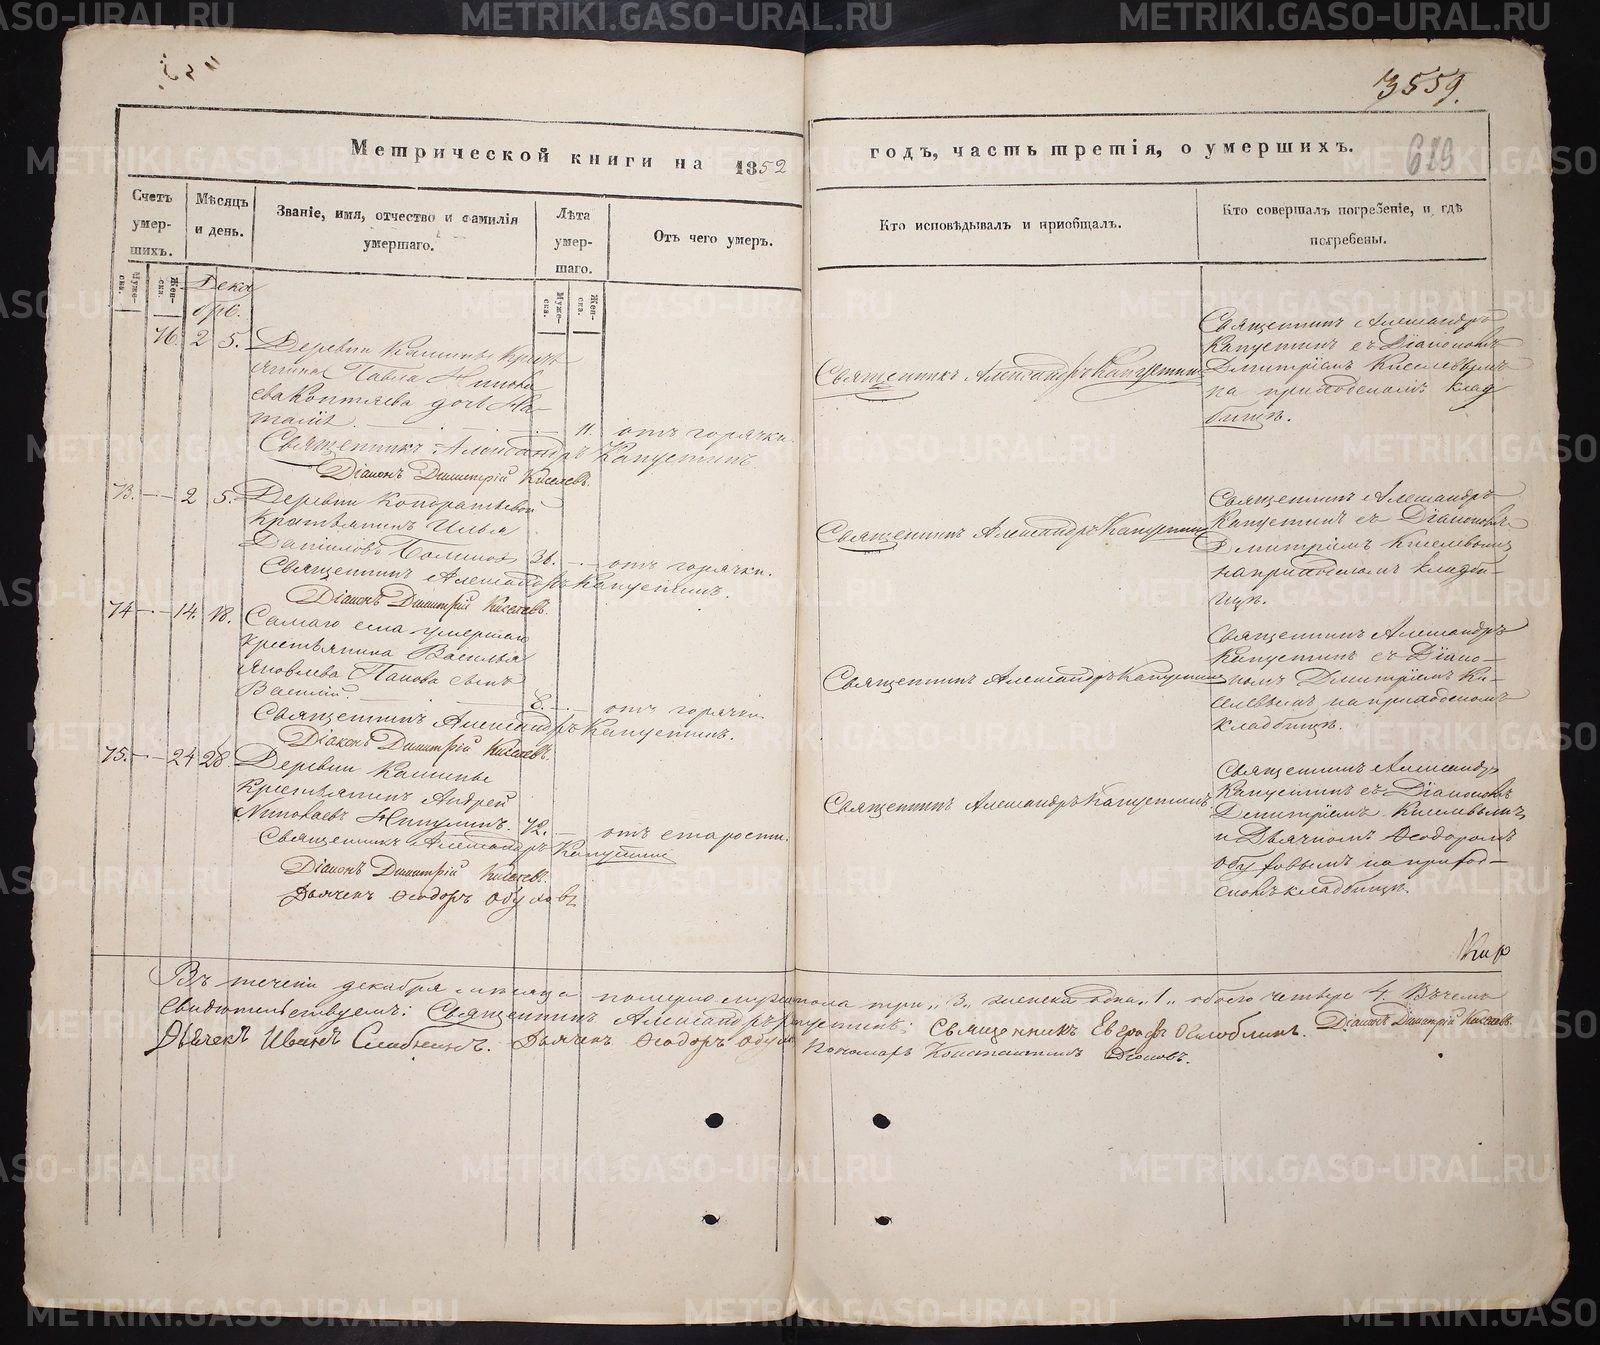 3559.
Метрической книги на 1852
годъ, часть третія, о умершихъ.
619
Счетъ умер-шихъ.
Мѣсяцъ и день.
Званіе, имя, отчество и фамилія умершаго.
Лѣта умер-шаго.
Отъ чего умеръ.
Кто исповѣдывалъ и пріобщалъ.
Кто совершалъ погребеніе, и гдѣ погребены.
Муже-ска.
Жен-ска.
Муже-ска.
Жен-ска.
Дека
брь.
76. 2 5. Деревни
Павла
дочь На-
талія 11. отъ горячки.
Священникъ Александръ Капустинъ
Діаконъ Димитрій Киселевъ.
Священникъ Александръ Капустинъ
Священникъ Александръ
Капустинъ съ Діакономъ
Димитріемъ Киселевымъ
на приходскомъ клад
бищѣ.
73. 2 5. Деревни Кондратьевой
Крестьянинъ Илья
Даниловъ 36. отъ горячки.
Священникъ Александръ Капустинъ.
Діаконъ Димитрій Киселевъ.
Священникъ Александръ Капустинъ
Священникъ Александръ
Капустинъ съ Діакономъ
Димитріемъ Киселевымъ
на приходскомъ кладби-
щѣ.
74 14. 18. Самаго села умершаго
крестьянина Василья
Яковлева Панова сынъ
Василій. 8. отъ горячки.
Священникъ Александръ Капустинъ.
Діаконъ Димитрій Киселевъ.
Священникъ Александръ Капустинъ
Священникъ Александръ
Капустинъ съ Діако-
номъ Димитріемъ Ки-
селевымъ на приходскомъ
кладбищѣ.
75. 24 28. Деревни
Крестьянинъ Андрей
Никулинъ. 72. отъ старости.
Священникъ Александръ Капустинъ
Діаконъ Димитрій Киселевъ.
Дьячекъ Ѳеодоръ Обуховъ
Священникъ Александръ Капустинъ
Священникъ Александръ
Капустинъ съ Діакономъ
Димитріемъ Киселевымъ
и Дьячкомъ Ѳеодоромъ
Обуховымъ на приход-
скомъ кладбищѣ.
Въ теченіи декабря мѣсяца померло мужеска пола три „3„ женска одна „1„ обоего четверо 4. Въ чемъ
свидѣтельствуемъ: Священникъ Александръ Капустинъ; Священникъ Евграфъ Діаконъ Димитрій Киселевъ.
Дьячекъ Иванъ Дьячекъ Ѳеодоръ Обуховъ Пономарь Константинъ